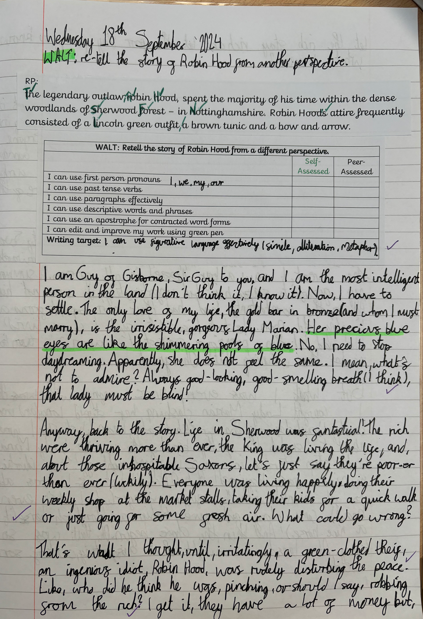 Wednesday 18th September 2024
WALT: re-tell the story of Robin Hood from another perspective.
RP:
The legendary outlaw, Robin Hood, spent the majority of his time within the dense
woodlands of Sherwood Forest – in Nottinghamshire. Robin Hood's attire frequently
consisted of a Lincoln green outfit, a brown tunic and a bow and arrow.
WALT: Retell the story of Robin Hood from a different perspective.
Self-Assessed Peer-Assessed
I can use first person pronouns I, we, my, our
I can use past tense verbs
I can use paragraphs effectively
I can use descriptive words and phrases
I can use an apostrophe for contracted word forms
I can edit and improve my work using green pen
Writing target: I can use figurative language effectively (simile, alliteration, metaphor)
I am Guy of Gisborne, Sir Guy to you, and I am the most intelligent
person in the land (I don't think it, I know it). Now, I have to
settle. The only love of my life, the gold bar in bronzeland whom I must
marry), is the irresistible, gorgeous Lady Marian. Her precious blue
eyes are like the shimmering pools of blue. No, I need to stop
daydreaming. Apparently, she does not feel the same. I mean, what's
not to admire? Always good-looking, good-smelling breath (I think),
that lady must be blind!
Anyway, back to the story. Life in Sherwood was fantastic! The rich
were thriving more than ever, the King was living the life, and,
about those inhospitable Saxons, let's just say they're poor-or
than ever (luckily). Everyone was living happily, doing their
weekly shop at the market stalls, taking their kids for a quick walk
or just going for some fresh air. What could go wrong?
That's what I thought, until, irritatingly, a green-clothed thief,
an ingenious idiot, Robin Hood, was rudely disturbing the peace.
Like, who did he think he was, pinching, or should I say, robbing
from the rich? I get it, they have a lot of money but,